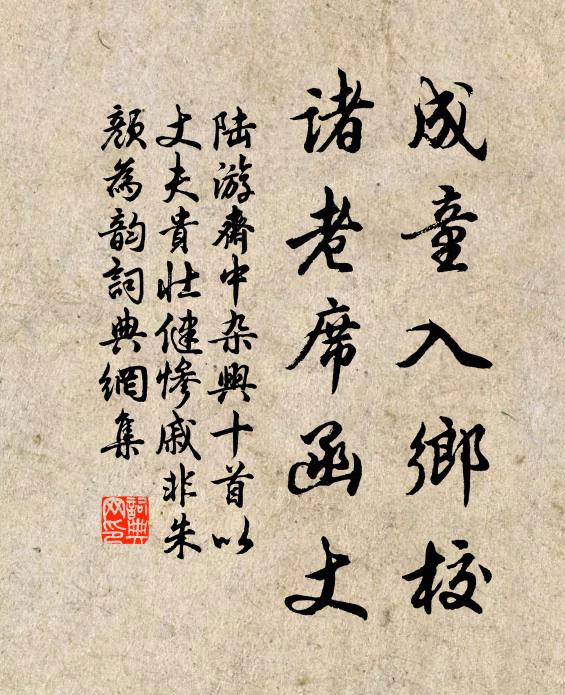 成童入鄉校
諸老席函丈
陸游齋中杂興十首以
丈夫貴壯健慘戚非朱
顏為韵詞典網集
詞典
网印